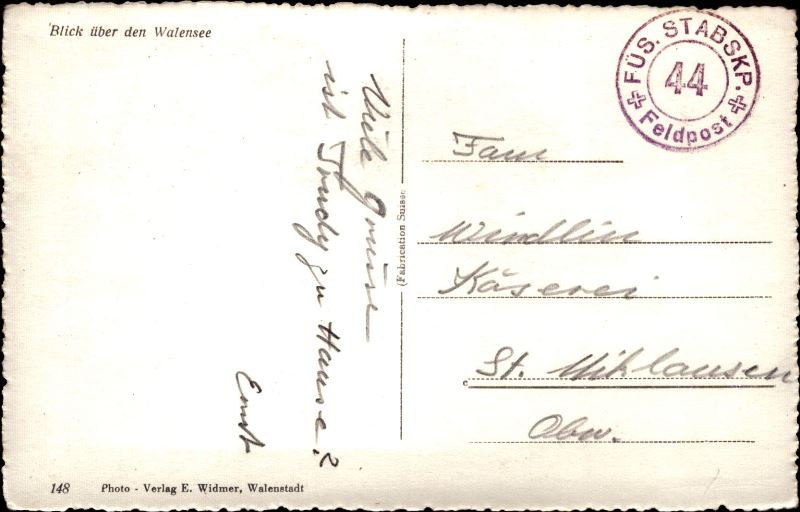 Blick über den Walensee
Viele Grüsse
ist Trudy zu Hause?
Ernst
(Fabrication Suisse)
FÜS. STABSKP.
44
Feldpost
Fam
Windlin
Käserei
St. Niklausen
Obw.
148 Photo - Verlag E. Widmer, Walenstadt